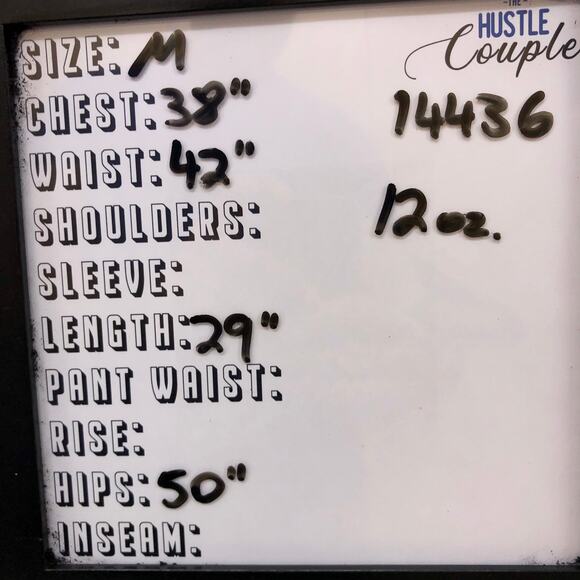 -THE-
HUSTLE
Couple
SIZE: M
CHEST: 38"
14436
WAIST: 42"
SHOULDERS:
12 oz.
SLEEVE:
LENGTH: 29"
PANT WAIST:
RISE:
HIPS: 50"
INSEAM: